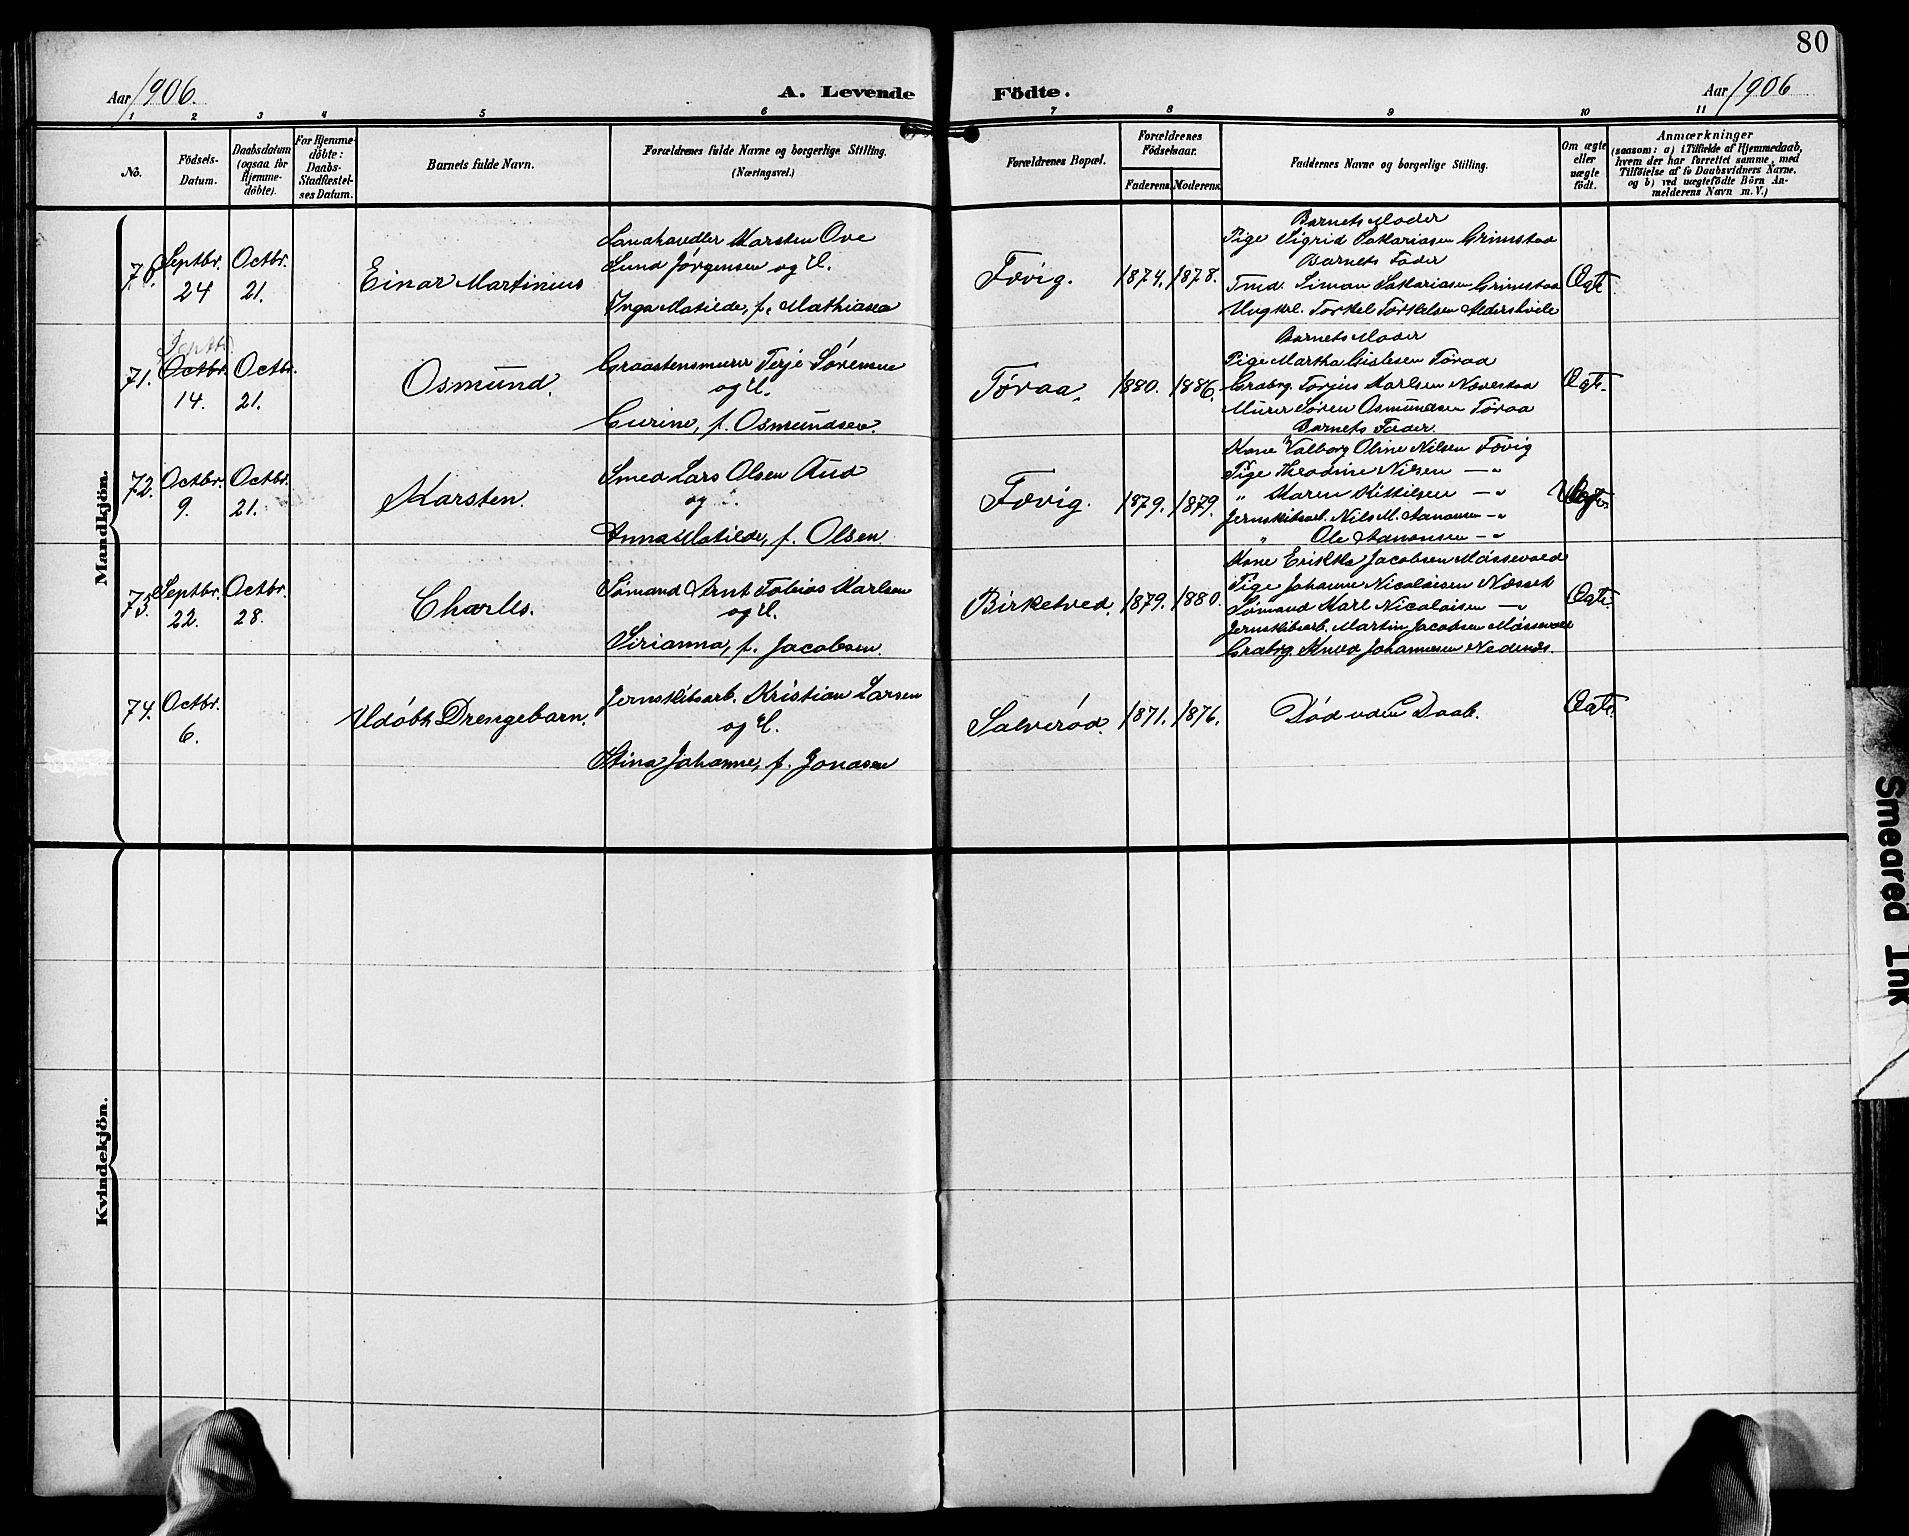 80
Aar 1906.
A. Levende Födte.
Aar 1906
1 2 3 4 5 6 7 8 9 10 11
No.
Födsels-Datum.
Daabsdatum (ogsaa for Hjemme-döbte).
For Hjemme-döbte: Daabs-Stadfæstel-ses Datum.
Barnets fulde Navn.
Forældrenes fulde Navne og borgerlige Stilling.
(Næringsvei.)
Forældrenes Bopæl.
Forældrenes Födselsaar.
Faderens. Moderens.
Faddernes Navne og borgerlige Stilling.
Om ægte eller uægte födt.
Anmærkninger
(saasom: a) i Tilfælde af Hjemmedaab,
hvem der har forrettet samme, med
Tilföielse af to Daabsvidners Navne,
og b) ved uægtefödte Börn An-
melderens Navn m. V.)
Mandkjön.
Septbr. 24
Octbr. 21.
Einar Martinius
Landhandler Karsten Ove
Lund Jørgensen og H.
Inga Matilde, f. Mathiasen
Fævig.
1874. 1878.
Barnets Moder
Pige Sigrid Sakariasen Grimstad
Barnets Fader
Simon Sakariasen Grimstad
Ungkrl. Torkel Torkelsen Alderslvile
Ægte
71.
Septbr.
Octbr. 14.
Octbr. 21.
Osmund.
Graastensmurer Terje Sørensen
og H.
Gurine, f. Osmundsen.
Tøraa.
1880. 1886.
Barnets Moder
Pige Martha Gislesen Tøraa
Grabrg. Torjus Karlsen Nævestad
Murer Søren Osmundsen Tøraa
Barnets Fader.
Ægte.
72.
Octbr. 9.
Octbr. 21.
Karsten.
Smed Lars Olsen Aud
og
Anna Matilde, f. Olsen
Fævig.
1879. 1879.
Kone Valborg Oline Nilsen Fævig
Pige Theodine Nilsen — „
„ Karen Kittilsen — „
Jernskibsarb. Nils M. Aanonsen — „
„ Ole Aanonsen — „
73.
Septbr. 22.
Octbr. 28.
Charles.
Sømand Arnt Tobias Karlsen
og H.
Sirianna, f. Jacobsen.
Birketved.
1879. 1880.
Kone Erikka Jacobsen Måssevold
Pige Johanne Nicolaisen Næsset
Sømand Karl Nicolaisen — „
Jernskibsarb. Martin Jacobsen Måssevold
Grabrg. Knud Johannesen Nedenæs.
Ægte.
74.
Octbr. 6.
Udøbt Drengebarn.
Jernskibsarb. Kristian Larsen
og H.
Stina Johanne, f. Jonasen
Salverød.
1871. 1876.
Død uden Daab.
Ægte.
Kvindekjön.
Smeared Ink